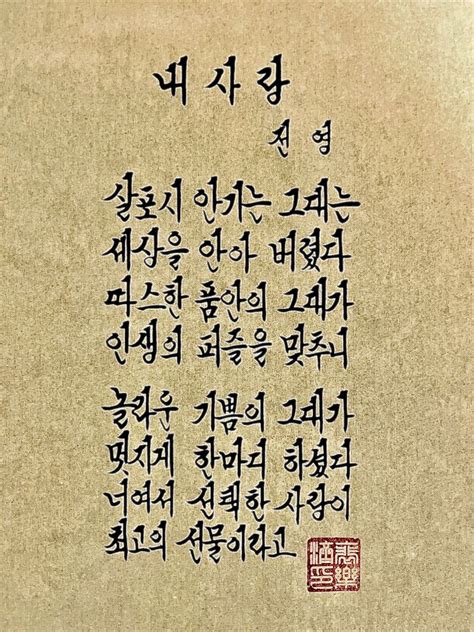 내 사랑
전 영
살포시 안기는 그대는
세상을 안아 버렸다
따스한 품안의 그대가
인생의 퍼즐을 맞추니
놀라운 기쁨의 그대가
멋지게 한마디 하셨다
너여서 선택한 사랑이
최고의 선물이라고